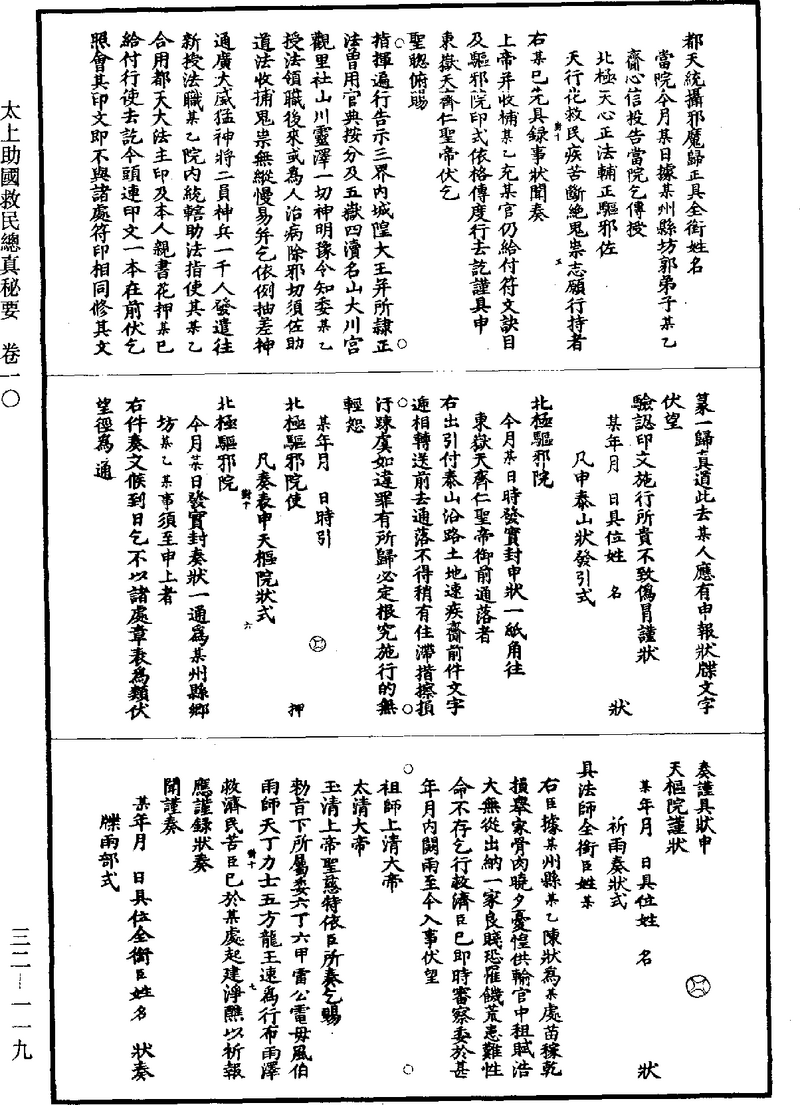 太上助國救民總真秘要　卷一〇
三二—一一九
都天統攝邪魔歸正具全銜姓名
當院今月某日據某州縣坊郭弟子某乙
齋心信投告當院乞傳授
北極天心正法輔正驅邪佐
天行化救民疾苦斷絕鬼祟志願行持者
右某已先具録事狀聞奏
上帝并收補某乙充某官仍給付符文訣目
及驅邪院印式依格傳度行去訖謹具申
東嶽天齊仁聖帝伏乞
聖聰俯賜
指揮遍行告示三界內城隍大王并所隸正
法曾用官典按分及五嶽四瀆名山大川宮
觀里社山川靈澤一切神明豫令知委某乙
授法領職後來或為人治病除邪切須佐助
道法收捕鬼祟無縱慢易并乞依例抽差神
通廣大威猛神將二員神兵一千人發遣往
新授法職某乙院內統轄助法指使其某乙
合用都天大法主印及本人親書花押某已
給付行使去訖今頭連印文一本在前伏乞
照會其印文即不與諸處符印相同修其文
篆一歸真道此去某人應有申報狀牒文字
伏望
驗認印文施行所貴不致僞冒謹狀
某年月　日具位姓　名　狀
凡申泰山狀發引式
北極驅邪院
今月某日時發實封申狀一紙角往
東嶽天齊仁聖帝御前通落者
右出引付泰山沿路土地速疾齎前件文字
遞相轉送前去通落不得稍有住滯揩擦損
汙踈虞如違罪有所歸必定根究施行的無
輕恕
某年月　日時引
北極驅邪院使　押
凡奏表申天樞院狀式
北極驅邪院
今月某日發實封奏狀一通為某州縣鄉
坊某乙某事須至申上者
右件奏文候到日乞不以諸處章表為類伏
望徑為通
奏謹具狀申
天樞院謹狀
某年月　日具位姓　名　狀
祈雨奏狀式
具法師全銜臣姓某
右臣據某州縣某乙陳狀為某處苗稼乾
損舉家骨肉曉夕憂惶供輸官中租賦浩
大無從出納一家良賤恐罹饑荒患難性
命不存乞行救濟臣已即時審察委於甚
年月內闕雨至今入事伏望
祖師上清大帝
太清大帝
玉清上帝聖慈特依臣所奏乞賜
勑旨下所屬委六丁六甲雷公電母風伯
雨師天丁力士五方龍王速為行布雨澤
救濟民苦臣已於某處起建淨醮以祈報
應謹錄狀奏
聞謹奏
某年月　日具位全銜臣姓名　狀奏
牒雨部式